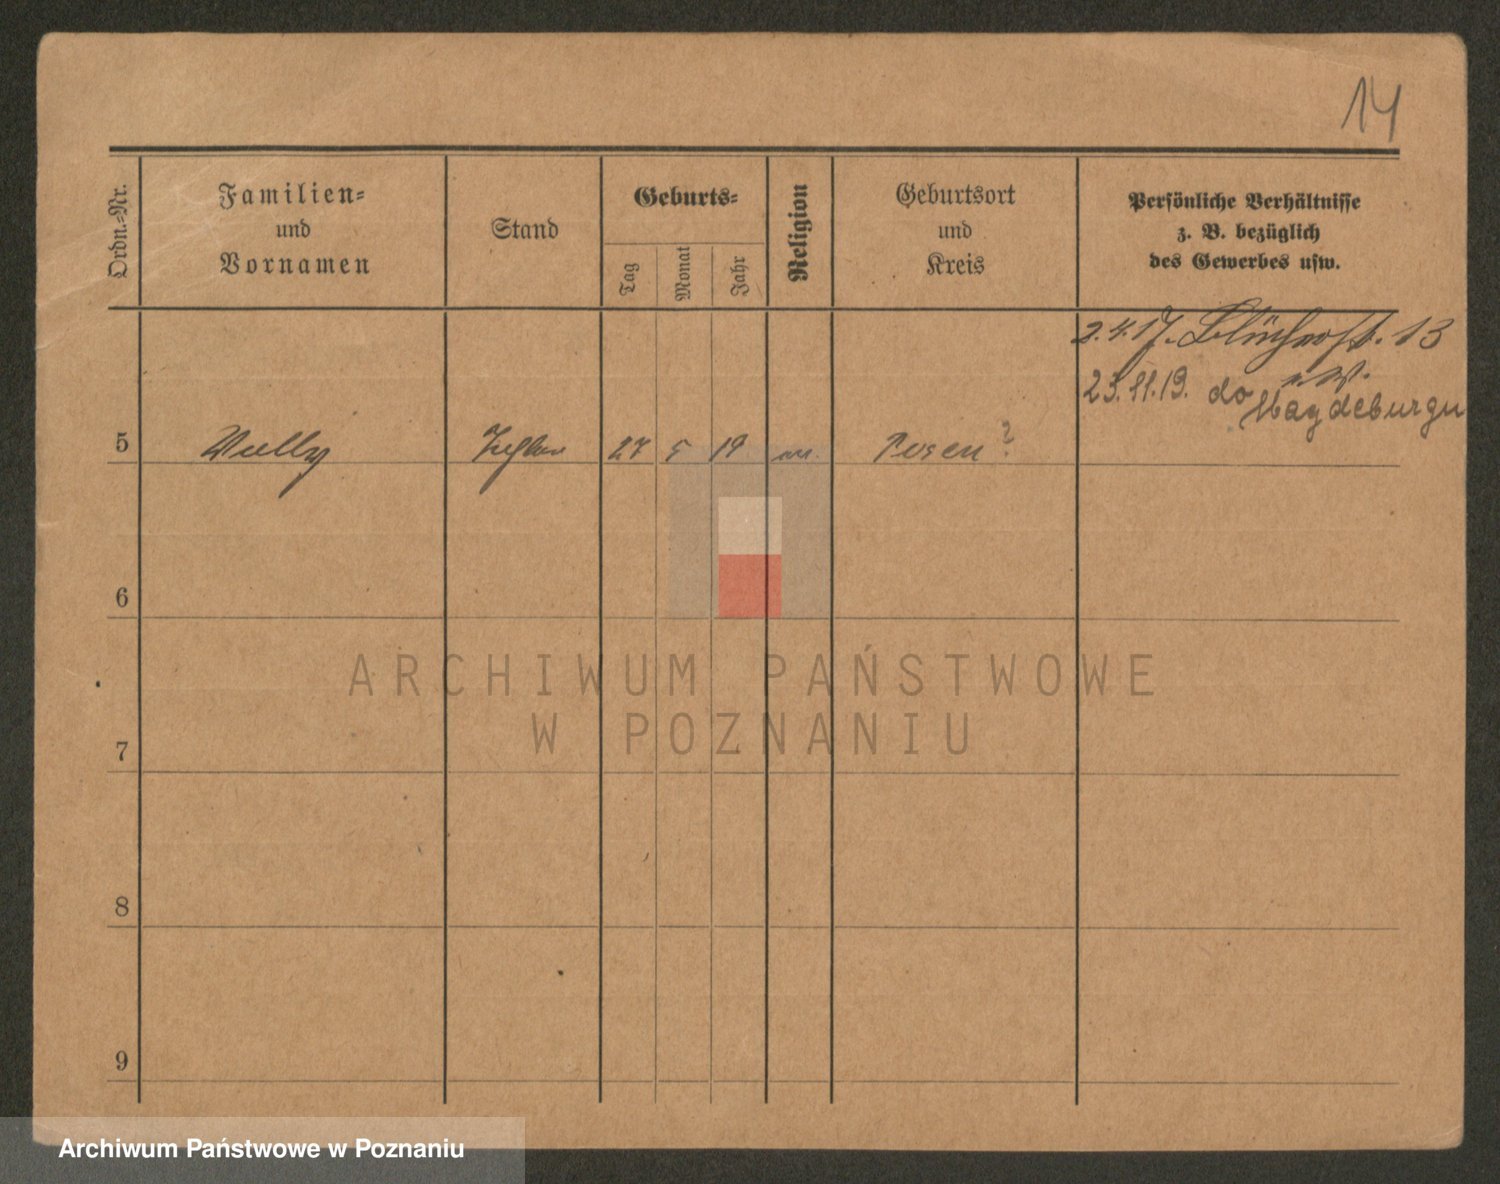 14
Ordn.-Nr.
Familien-
und
Vornamen
Stand
Geburts-
Tag
Monat
Jahr
Religion
Geburtsort
und
Kreis
Persönliche Verhältnisse
z. B. bezüglich
des Gewerbes usw.
2.4.17. Blücherstr. 13
23.11.19. do Magdeburg
5 Willy 27 5 19 Posen?
6
7
8
9
ARCHIWUM PAŃSTWOWE
W POZNANIU
Archiwum Państwowe w Poznaniu